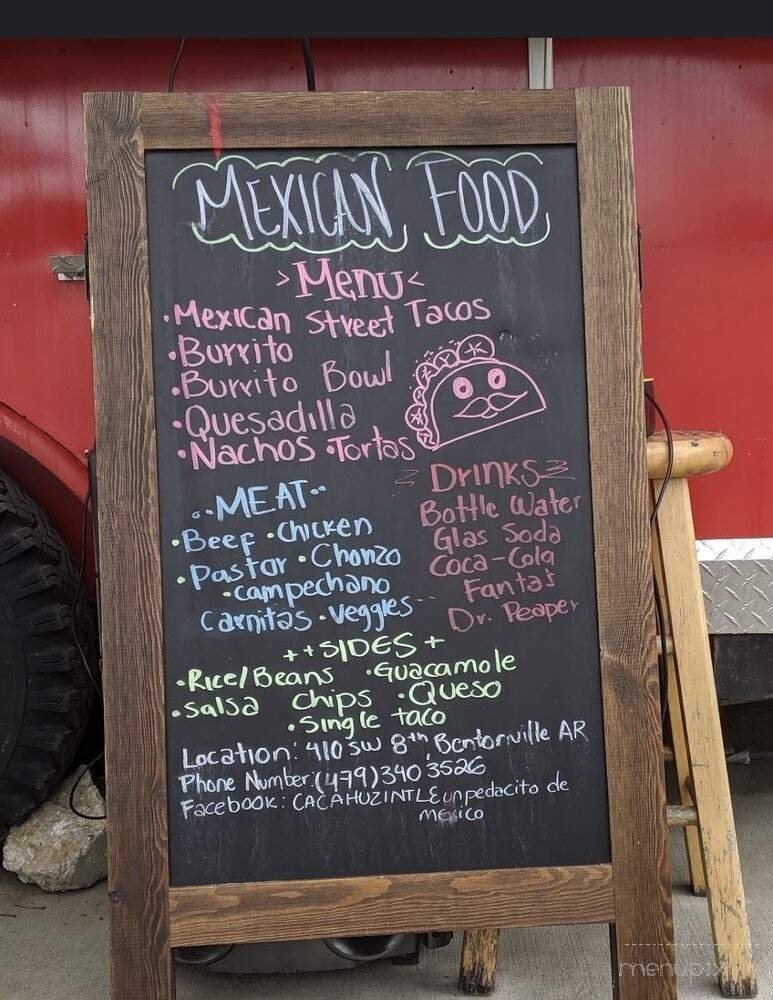 MEXICAN FOOD
>Menu<
•Mexican Street Tacos
•Burrito
•Burrito Bowl
•Quesadilla
•Nachos •Tortas
..MEAT..
•Beef •Chicken
•Pastor •Chorizo
•campechano
Carnitas •veggies
DRINKS
Bottle Water
Glas Soda
Coca-Cola
Fantas
Dr. Peaper
++SIDES+
•Rice/Beans •Guacamole
•Salsa Chips •Queso
•Single taco
Location: 410 SW 8th, Bentonville AR
Phone Number:(479)340 3526
Facebook: CACAHUZINTLE un pedacito de
mexico
menupix